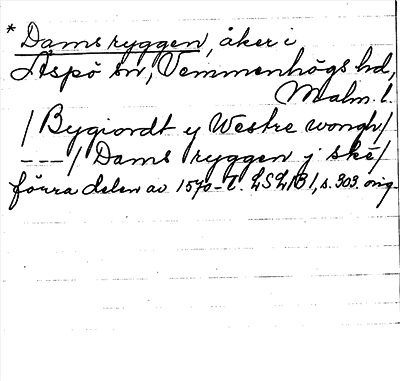 * Damsryggen, åker i
Äspö sn, Vemmenhögs hd,
Malm. l.
/ Bygiordt y Westre wongh /
--- / Dams ryggen j ské /
förra delen av 1570-t. LSLIB 1, s. 303. orig.